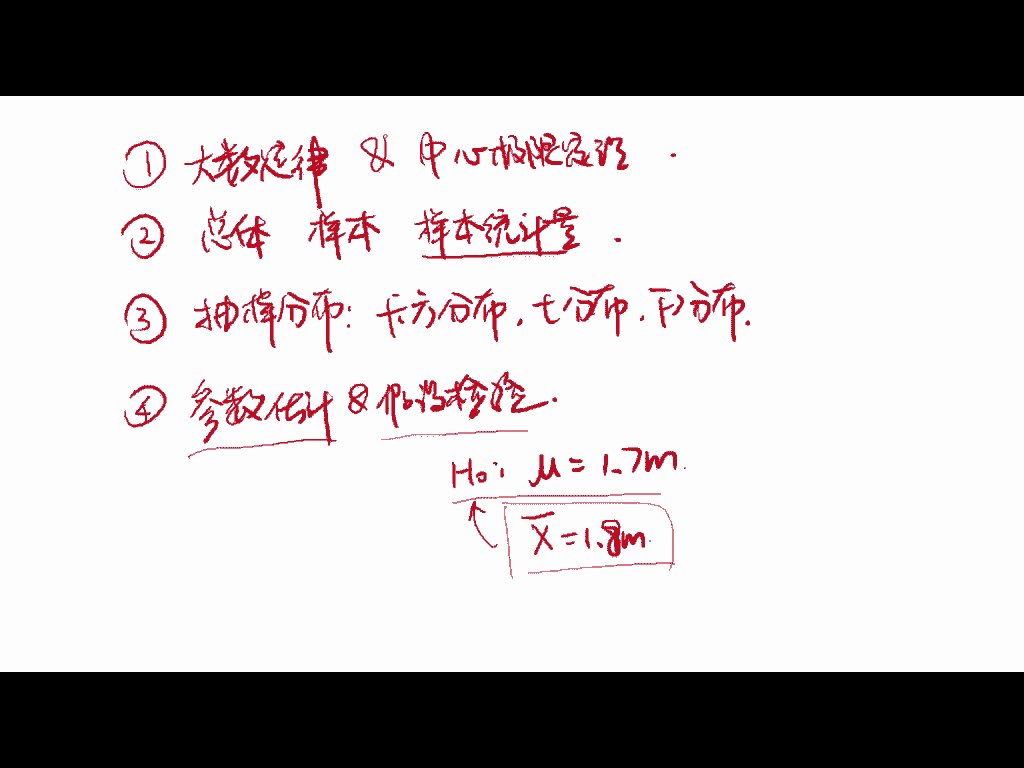 ① 大数定律 & 中心极限定理.
② 总体 样本 样本统计量.
③ 抽样分布: 卡方分布, t分布, F分布.
④ 参数估计 & 假设检验.
H₀: μ = 1.7m.
X̅ = 1.8m